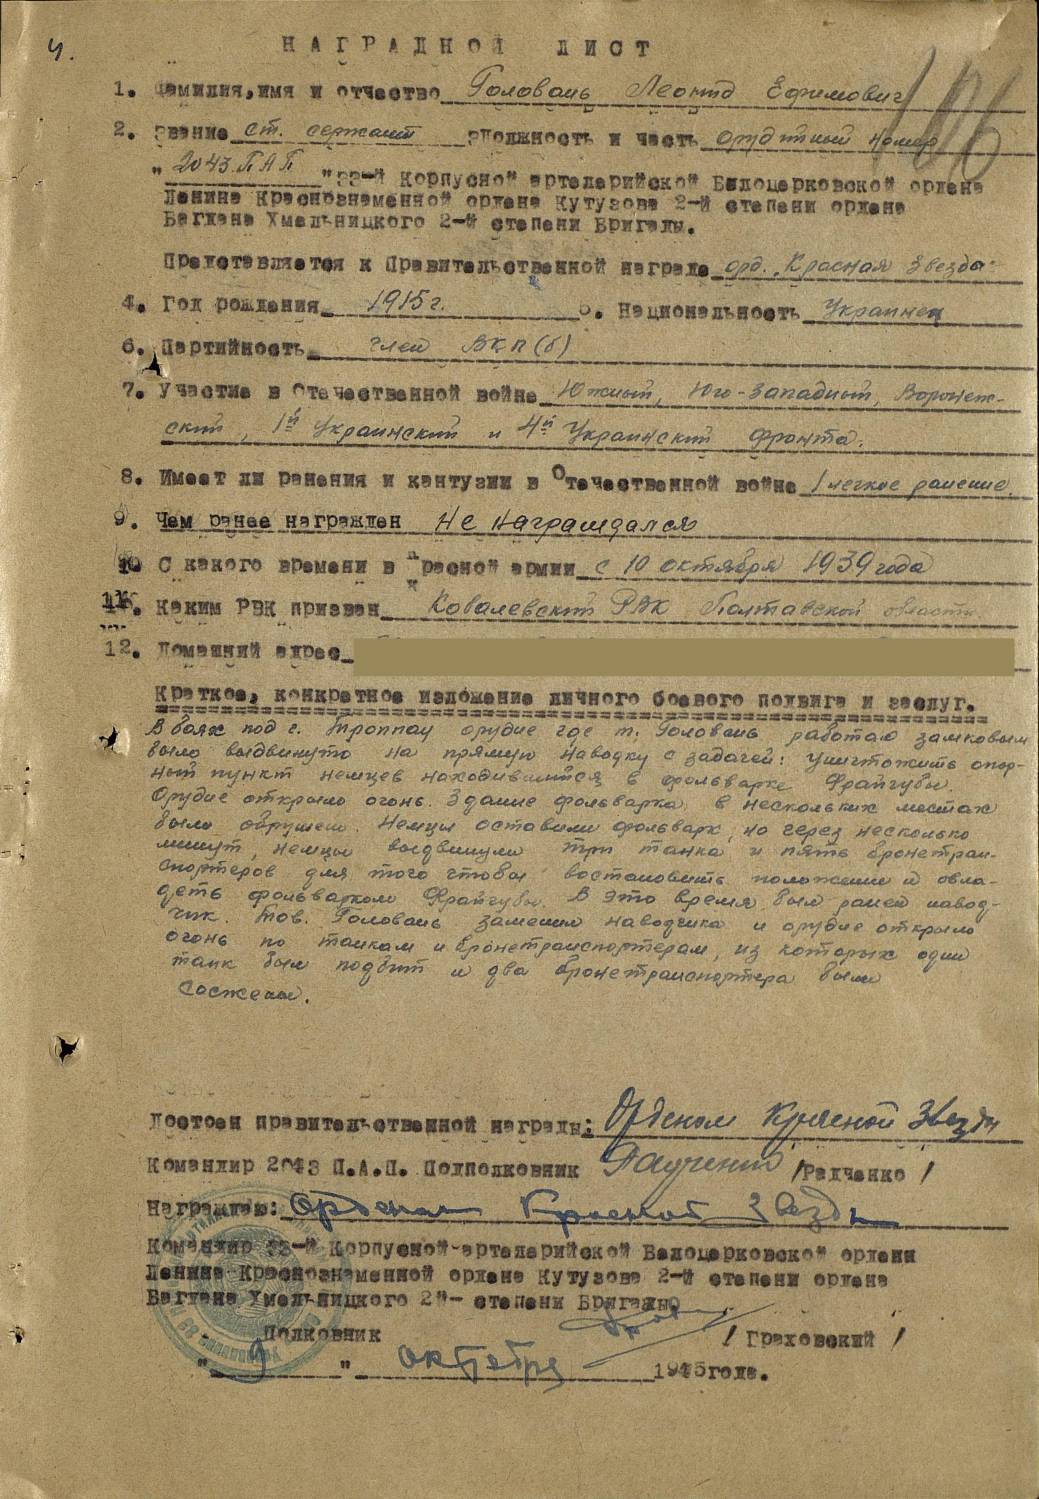 4.
НАГРАДНОЙ ЛИСТ
106
1. Фамилия, имя и отчество Головань Леонид Ефимович
2. Звание ст. сержант должность и часть орудийный номер
"2043 ПАП" 33-й Корпусной артелерийской Белоцерковской ордена
Ленина Краснознаменной ордена Кутузова 2-й степени ордена
Багдана Хмельницкого 2-й степени Бригады.
Представляется к Правительственной награде орд. "Красная Звезды"
4. Год рождения 1915 г. 5. Национальность Украинец
6. Партийность член ВКП(б)
7. Участие в Отечественной войне Южный, Юго-Западный, Воронеж-
ский, 1й Украинский и 4й Украинский фронта.
8. Имеет ли ранения и кантузии в Отечественной войне 1 легкое ранение
9. Чем ранее награжден Не награждался
10 С какого времени в Красной армии с 10 октября 1939 года
11. Каким РВК призван Ковалевский РВК Полтавской области
12. Домашний адрес
Краткое, конкретное изложение личного боевого подвига и заслуг.
В боях под г. Троппау орудие где т. Головань работаю замковым
было выдвинуто на прямую наводку с задачей: уничтожить опор-
ный пункт немцев находившийся в фольварке Фрайгубы.
Орудие открыло огонь. Здание фольварка в нескольких местах
было обрушен. Немцы оставили фольварк, но через несколько
минут, немцы выдвинули три танка и пять бронетран-
спортеров для того чтобы востановить положение и овла-
деть фольварком Фрайгубы. В это время был ранен навод-
чик. Тов. Головань заменил наводчика и орудие открыло
огонь по танкам и бронетранспортерам, из которых один
танк был подбит и два бронетранспортера были
сожжены.
Достоен правительственной награды: Орденом Красной Звезды
Командир 2043 П.А.П. Подполковник Радченко /Радченко/
Награждаю: Орденом Красной Звезды
Командир 33-й Корпусной-артелерийской Белоцерковской ордена
Ленина Краснознаменной ордена Кутузова 2-й степени ордена
Багдана Хмельницкого 2й- степени Бригады
Полковник /Граховский/
"9" октября 1945 года.